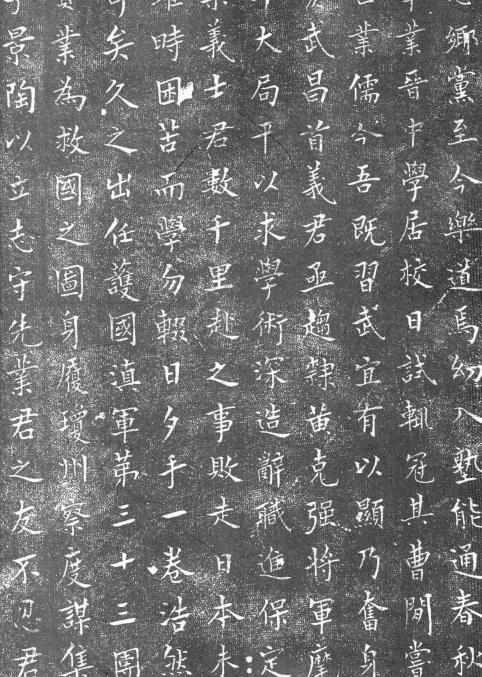 鄉黨至今樂道焉幼入塾能通春秋
業晉中學居校日試輒冠其曹間嘗
業儒今吾既習武宜有以顯乃奮身
武昌首義君亟趨隸黃克强將軍麾
大局平以求學術深造辭職進保定
義士君數千里赴之事敗走日本未
時困苦而學勿輟日夕手一卷浩然
矣久之出任護國滇軍第三十三團
業為救國之圖身履瓊州察度謀集
景陶以立志守先業君之友不忍君